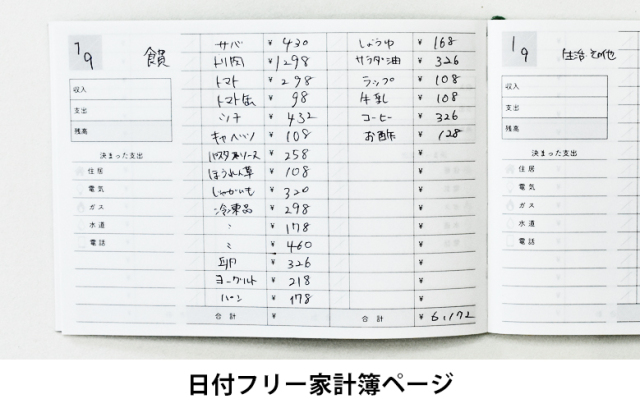 1/9 食費
収入
支出
残高
決まった支出
住居
電気
ガス
水道
電話
サバ ¥ 430
トリ肉 ¥ 1298
トマト ¥ 298
トマト缶 ¥ 98
ツナ ¥ 432
キャベツ ¥ 108
パスタソース ¥ 258
ほうれん草 ¥ 108
じゃがいも ¥ 320
冷凍品 ¥ 298
〃 ¥ 178
〃 ¥ 460
卵 ¥ 326
ヨーグルト ¥ 218
パン ¥ 178
合計 ¥
しょうゆ ¥ 168
サラダ油 ¥ 326
ラップ ¥ 108
牛乳 ¥ 108
コーヒー ¥ 326
お酢 ¥ 128
¥
¥
¥
¥
¥
¥
¥
¥
¥
合計 ¥ 6,172
1/9 生活 その他
収入
支出
残高
決まった支出
住居
電気
ガス
水道
電話
日付フリー家計簿ページ